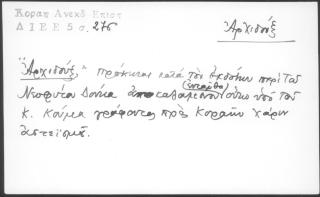 Κοραη Ανεκδ Επιστ
ΔΙΕΕ 5 σ. 276
Ἀρχιδούξ
"Ἀρχιδούξ" πρόκειται κατά τόν ἐκδότην περί τοῦ
Νεοφύτου Δούκα ἀποκαλουμένου (ἐνταῦθα) οὕτω ὑπό τοῦ
Κ. Κούμα γράφοντος πρός Κοραῆν χάριν
ἀστεϊσμοῦ.